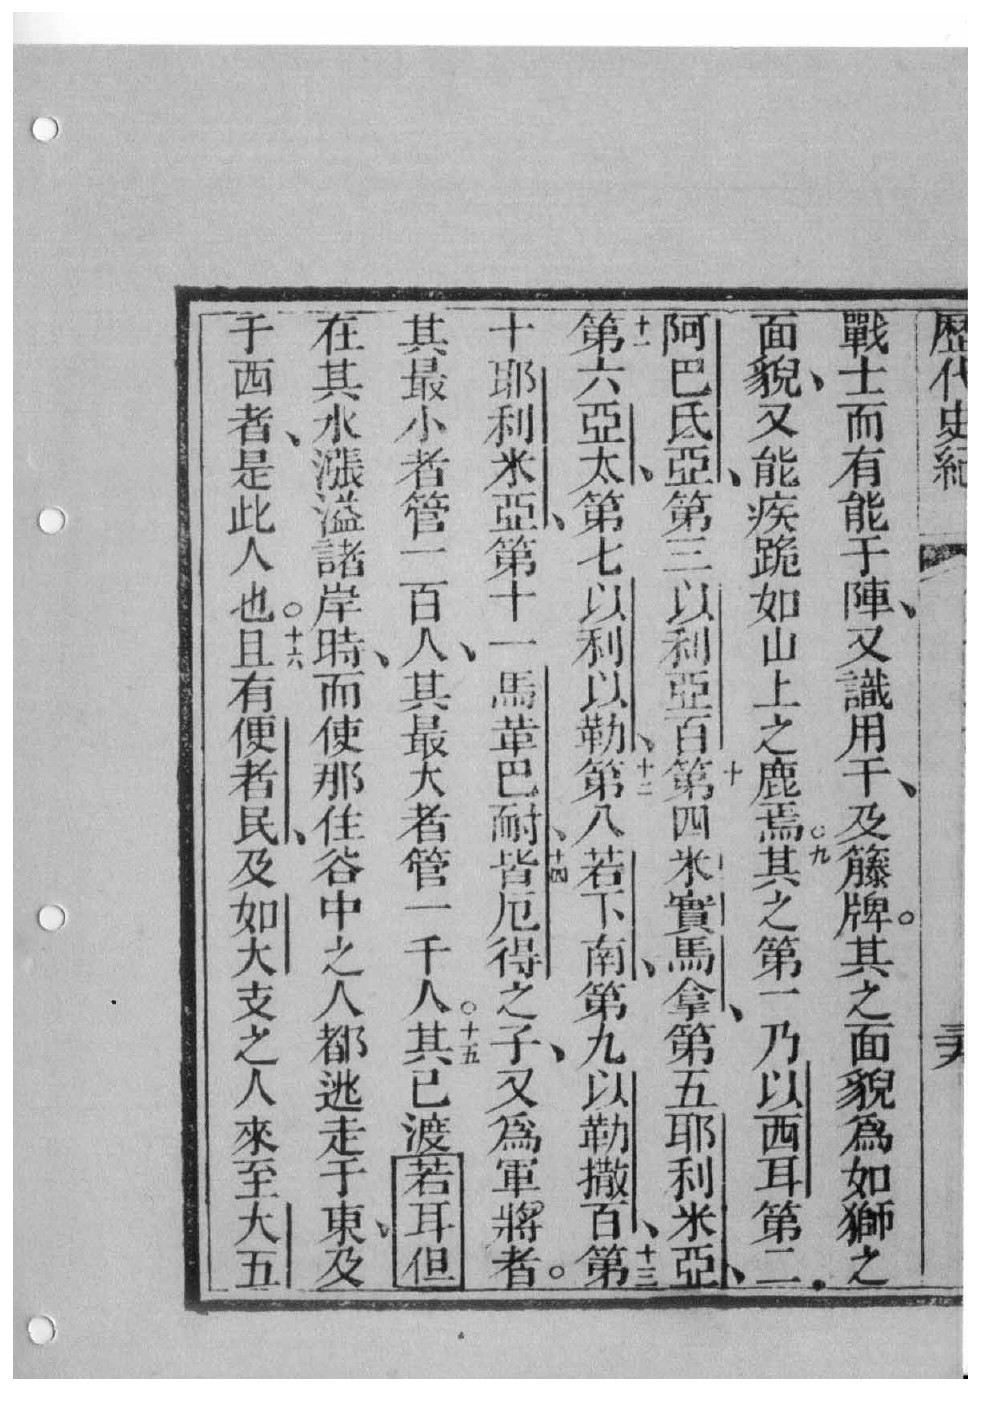 歷代史紀
戰士而有能于陣、又識用干、及籐牌。其之面貌為如獅之
面貌、又能疾跪如山上之鹿焉。九其之第一乃以西耳第二、
阿巴氏亞、第三以利亞百十第四米實馬拿、第五耶利米亞、
十一第六亞太、第七以利以勒、十二第八若下南、第九以勒撒百、十三第
十耶利米亞、第十一馬革巴耐、十四皆厄得之子、又為軍將者。
其最小者管一百人、其最大者管一千人。十五其已渡若耳但
在其水漲溢諸岸時、而使那住谷中之人都逃走于東、及
于西者、是此人也。十六且有便者民、及如大支之人來至大五